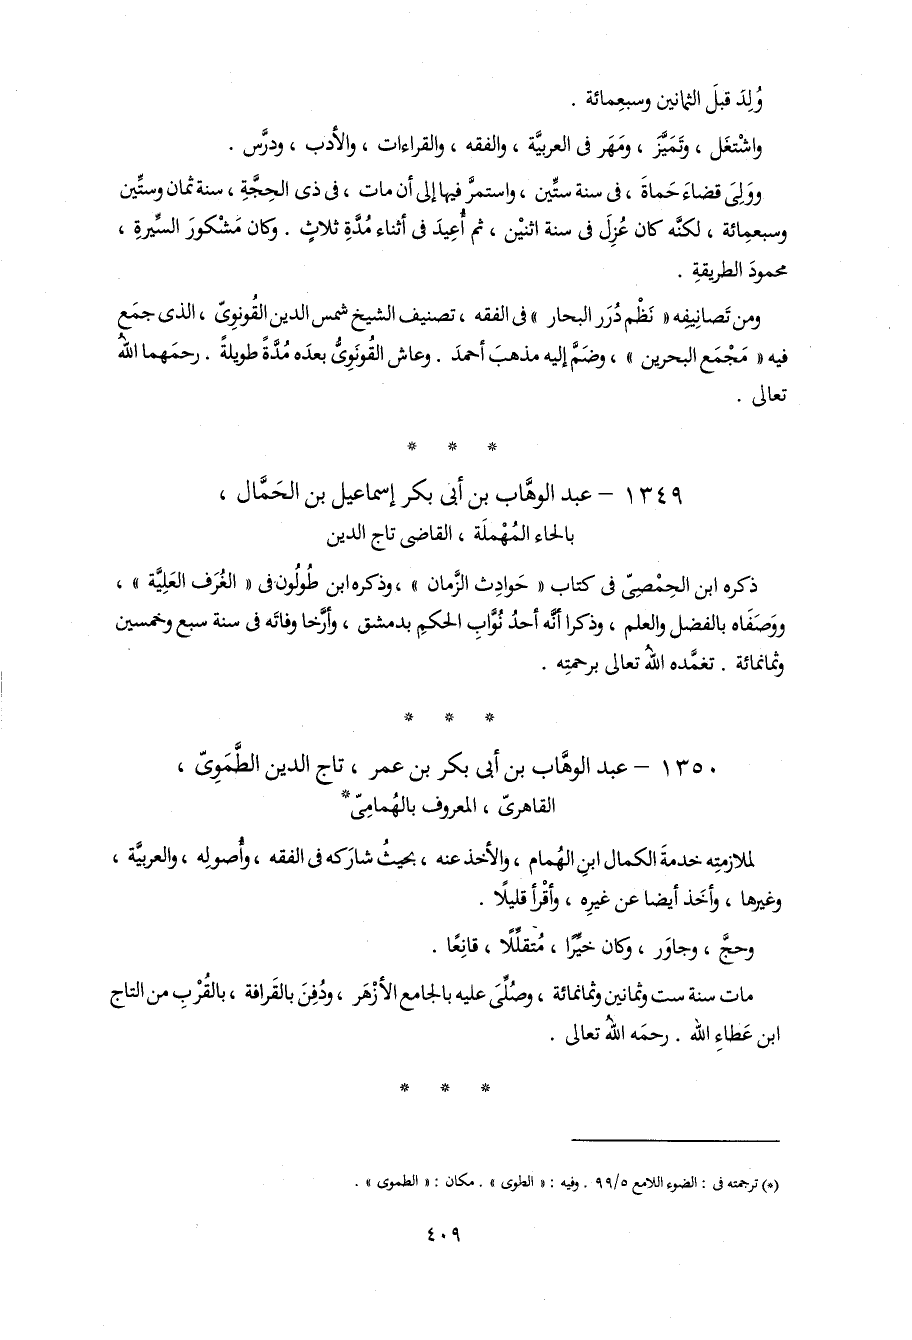 وُلِدَ قبلَ الثمانين وسبعِمائة .
واشْتغَل ، وتَمَيَّزَ ، ومَهَر فى العربيَّة ، والفقه ، والقراءات ، والأدب ، ودرَّس .
ووَلِىَ قضاءَ حَماةَ ، فى سنة ستِّين ، واستمرَّ فيها إلى أن مات ، فى ذى الحِجَّةِ ، سنة ثمان وستِّين
وسبعمِائة ، لكنَّه كان عُزِلَ فى سنة اثنيْن ، ثم أُعِيدَ فى أثناء مُدَّةِ ثلاثٍ . وكان مَشْكورَ السِّيرةِ ،
محمودَ الطريقةِ .
ومن تَصانِيفِه « نَظْم دُرَر البحار » فى الفقه ، تصنيف الشيخ شمس الدين القُونوِىّ ، الذى جمَع
فيه « مَجْمَع البحرين » ، وضَمَّ إليه مذهبَ أحمدَ . وعاش القُونَوِىُّ بعدَه مُدَّةً طويلةً . رحمَهما اللهُ
تعالى .
* * *
١٣٤٩ – عبد الوهَّاب بن أبى بكر إسماعيل بن الحَمَّال ،
بالحاء المُهْملَة ، القاضى تاج الدين
ذكره ابن الحِمْصِىّ فى كتاب « حَوادِث الزَّمان » ، وذكره ابن طُولُون فى « الغُرَف العَلِيَّة » ،
ووَصَفَاه بالفضل والعلم ، وذكرا أنَّه أحدُ نُوَّابِ الحكمِ بدمشق ، وأرَّخا وفاتَه فى سنة سبع وخمسين
وثمانمائة . تغمَّده اللهُ تعالى برحمتِه .
* * *
١٣٥٠ – عبد الوهَّاب بن أبى بكر بن عمر ، تاج الدين الطَّمَوِىّ ،
القاهرىّ ، المعروف بالهُمامِىّ*
لملازمتِه خدمةَ الكمال ابنِ الهُمام ، والأخذ عنه ، بحيثُ شارَكه فى الفقه ، وأُصولِه ، والعربيَّة ،
وغيرها ، وأخَذ أيضا عن غيرِه ، وأقْرأ قليلًا .
وحجَّ ، وجاوَر ، وكان خَيِّرًا ، مُتقلِّلًا ، قانِعًا .
مات سنة ست وثمانين وثمانمائة ، وصُلِّىَ عليه بالجامع الأزْهَر ، ودُفِنَ بالقَرافة ، بالقُرْبِ من التاج
ابن عَطاءِ الله . رحمَه اللهُ تعالى .
* * *
(*) ترجمته فى : الضوء اللامع ٩٩/٥ . وفيه : « الطوى » . مكان : « الطموى » .
٤٠٩